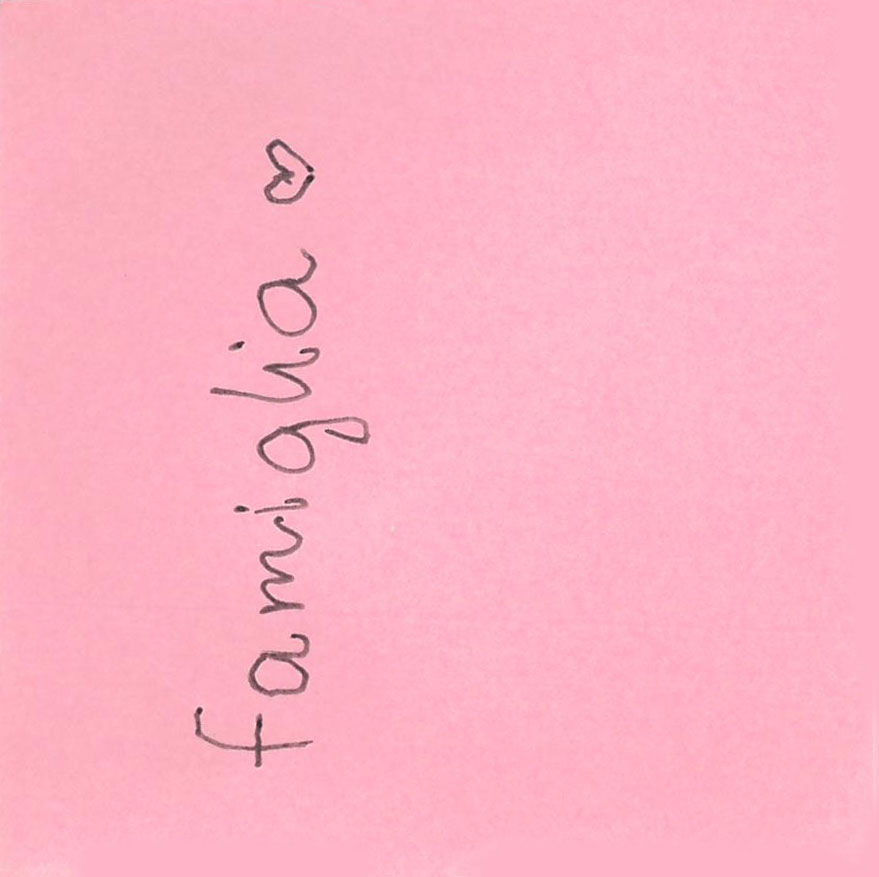 famiglia ♡